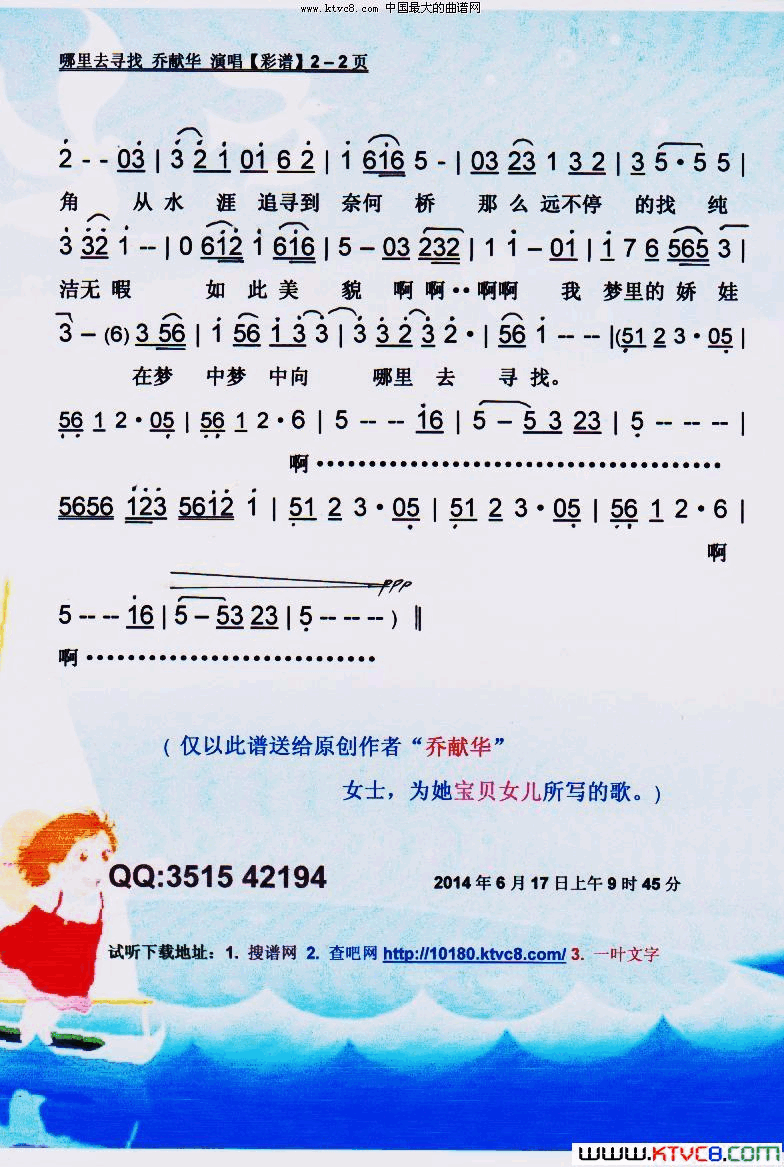 www.ktvc8.com 中国最大的曲谱网
哪里去寻找 乔献华 演唱【彩谱】2－2页
2 - - 03 | 3 2 1 01 6 2 | 1 616 5 - | 03 23 1 3 2 | 3 5 · 5 5 |
角 从 水 涯 追 寻 到 奈 何 桥 那 么 远 不 停 的 找 纯
3 32 1 -- | 0 612 1 616 | 5 – 03 232 | 1 1 – 01 | 1 7 6 565 3 |
洁 无 暇 如 此 美 貌 啊 啊 ·· 啊 啊 我 梦 里 的 娇 娃
3 – (6) 3 56 | 1 56 1 3 3 | 3 3 2 3 2 · | 56 1 -- -- |(51 2 3 · 05 |
在 梦 中 梦 中 向 哪 里 去 寻 找。
56 1 2 · 05 | 56 1 2 · 6 | 5 -- -- 16 | 5 – 5 3 23 | 5 -- -- -- |
啊 ································
5656 123 5612 1 | 51 2 3 · 05 | 51 2 3 · 05 | 56 1 2 · 6 |
啊
ppp
5 -- -- 16 | 5 – 53 23 | 5 -- -- -- ) ‖
啊 ·····························
( 仅以此谱送给原创作者“乔献华”
女士，为她宝贝女儿所写的歌。)
QQ:3515 42194
2014 年 6 月 17 日上午 9 时 45 分
试听下载地址：1. 搜谱网 2. 查吧网 http://10180.ktvc8.com/ 3. 一叶文字
www.KTVC8.com